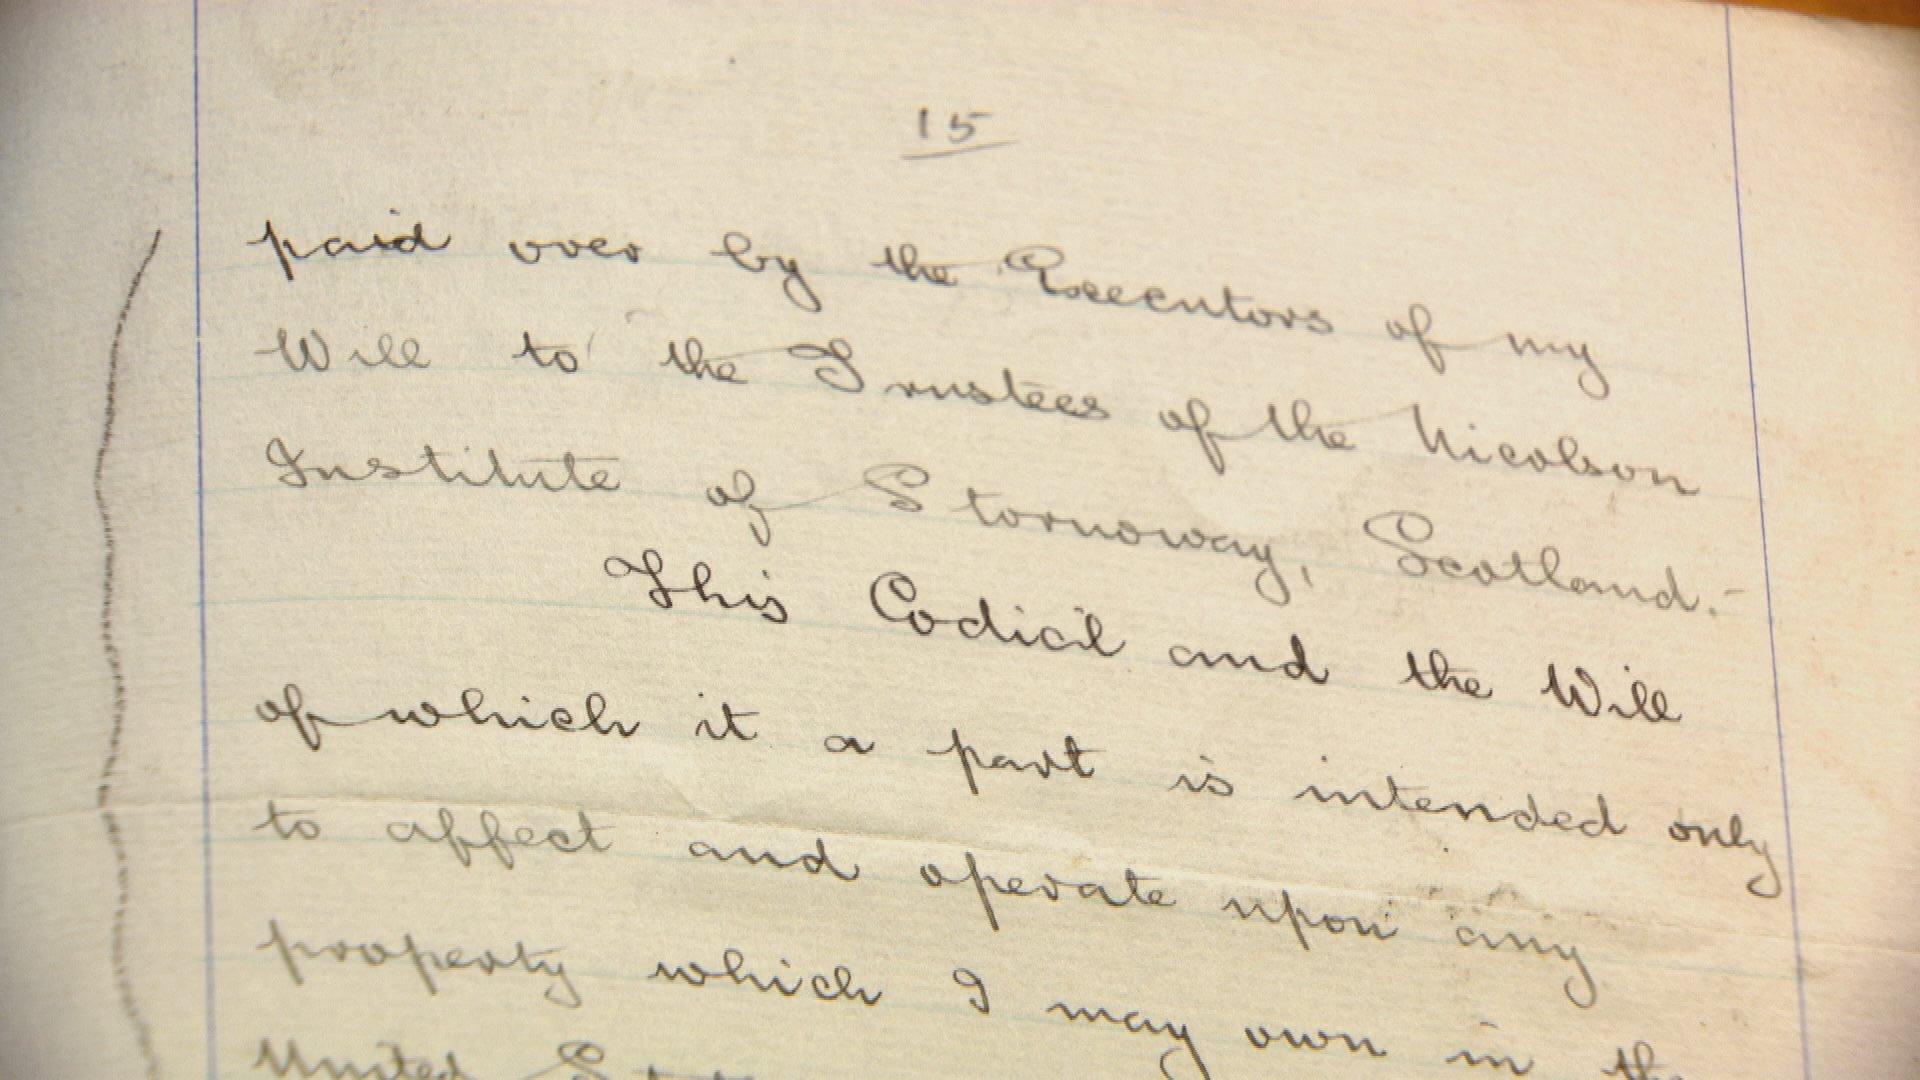 15
paid over by the Executors of my
Will to the Trustees of the Nicolson
Institute of Stornoway, Scotland.-
This Codicil and the Will
of which it a part is intended only
to affect and operate upon any
property which I may own in the
United